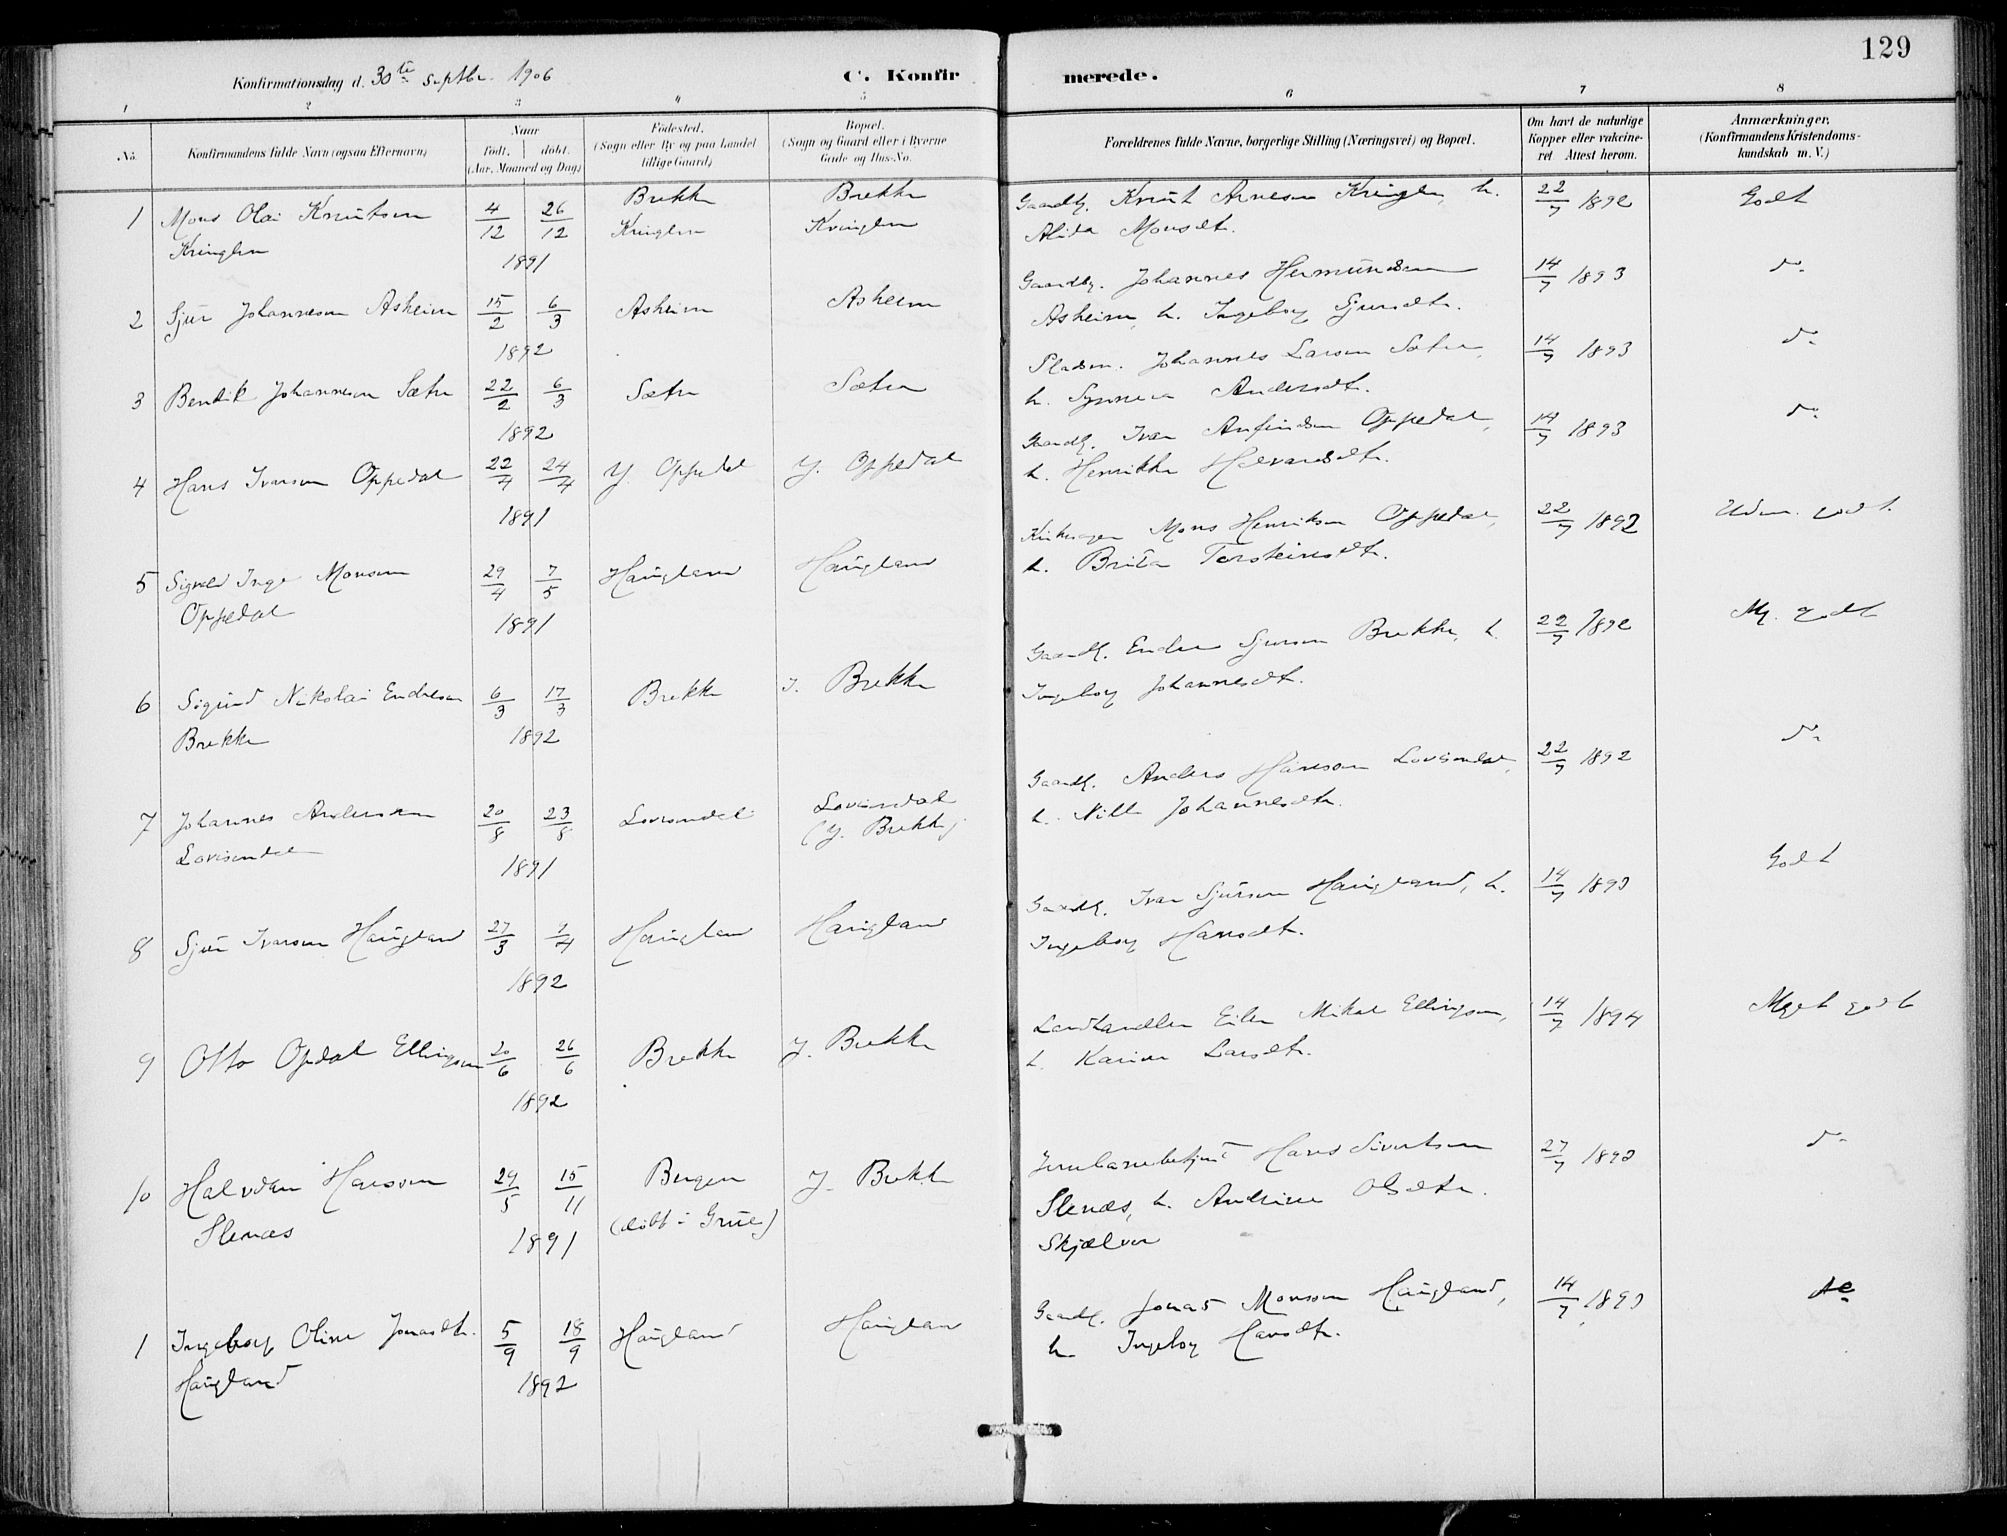 129
Konfirmationsdag d. 30te Septbr. 1906
C. Konfirmerede.
1 2 3 4 5 6 7 8
No.
Konfirmandens fulde Navn (ogsaa Efternavn)
Naar
født. døbt.
(Aar, Maaned og Dag)
Fødested.
(Sogn eller By og paa Landet
tillige Gaard)
Bopæl.
(Sogn og Gaard eller i Byerne
Gade og Hus-No.
Forældrenes fulde Navne, borgerlige Stilling (Næringsvei) og Bopæl.
Om havt de naturlige
Kopper eller vakcine-
ret Attest herom.
Anmærkninger.
(Konfirmandens Kristendoms-
kundskab m. V.)
1 Mons Olai Knutsen 4/12 26/12 Brekke Brekke Gaardbr. Knut Arnesen Kringlen, h. 22/7 1892 Godt
Kringlen 1891 Kringlen Kringlen Alida Monsdtr.
2 Sjur Johannesen Asheim 15/2 6/3 Asheim Asheim Gaardbr. Johannes Hermundsen 14/7 1893 do
1892 Asheim, h. Ingeborg Sjursdtr.
3 Bendik Johannesen Sætre 22/2 6/3 Sætre Sætre Pladsm. Johannes Larsen Sætre, 14/7 1893 do
1892 h. Synneva Andersdtr.
4 Hans Iversen Oppedal 22/4 24/4 Y. Oppedal Y. Oppedal Gaardbr. Iver Anfindsen Oppedal, 14/7 1893 do
1891 h. Henrikke Halvardsdtr.
5 Sigvald Inge Monsen 29/4 7/5 Haugland Haugland Kirkesanger Mons Henriksen Oppedal, 22/7 1892 Udm. godt.
Oppedal 1891 h. Brita Torsteinsdtr.
6 Sigurd Nikolai Endresen 6/3 17/3 Brekke Y. Brekke Gaardbr. Endre Sjursen Brekke, h. 22/7 1892 Mg. godt
Brekke 1892 Ingeborg Johannesdtr.
7 Johannes Andersen 20/8 23/8 Lovisendal Lovisendal Gaardbr. Anders Hansen Lovisendal, 22/7 1892 do
Lovisendal 1891 (Y. Brekke) h. Nille Johannesdtr.
8 Sjur Iversen Haugland 27/3 9/4 Haugland Haugland Gaardbr. Iver Sjursen Haugland, h. 14/7 1893 Godt
1892 Ingeborg Hansdtr.
9 Otto Opdal Ellingsen 20/6 26/6 Brekke Y. Brekke Landhandler Eiler Mikal Ellingsen, 14/7 1894 Meget godt
1892 h. Karine Larsdtr.
10 Halvdan Hanssen 29/5 15/11 Bergen Y. Brekke Jernbanebetjent Hans Sivertsen 27/7 1893 do
Stenæs 1891 (døbt i Grue) Stenæs, h. Andrine Olsdtr.
Skjælver
1 Ingeborg Oline Jonasdtr. 5/9 18/9 Haugland Haugland Gaardbr. Jonas Monsen Haugland, 14/7 1893 do
Haugland 1892 h. Ingeborg Hansdtr.